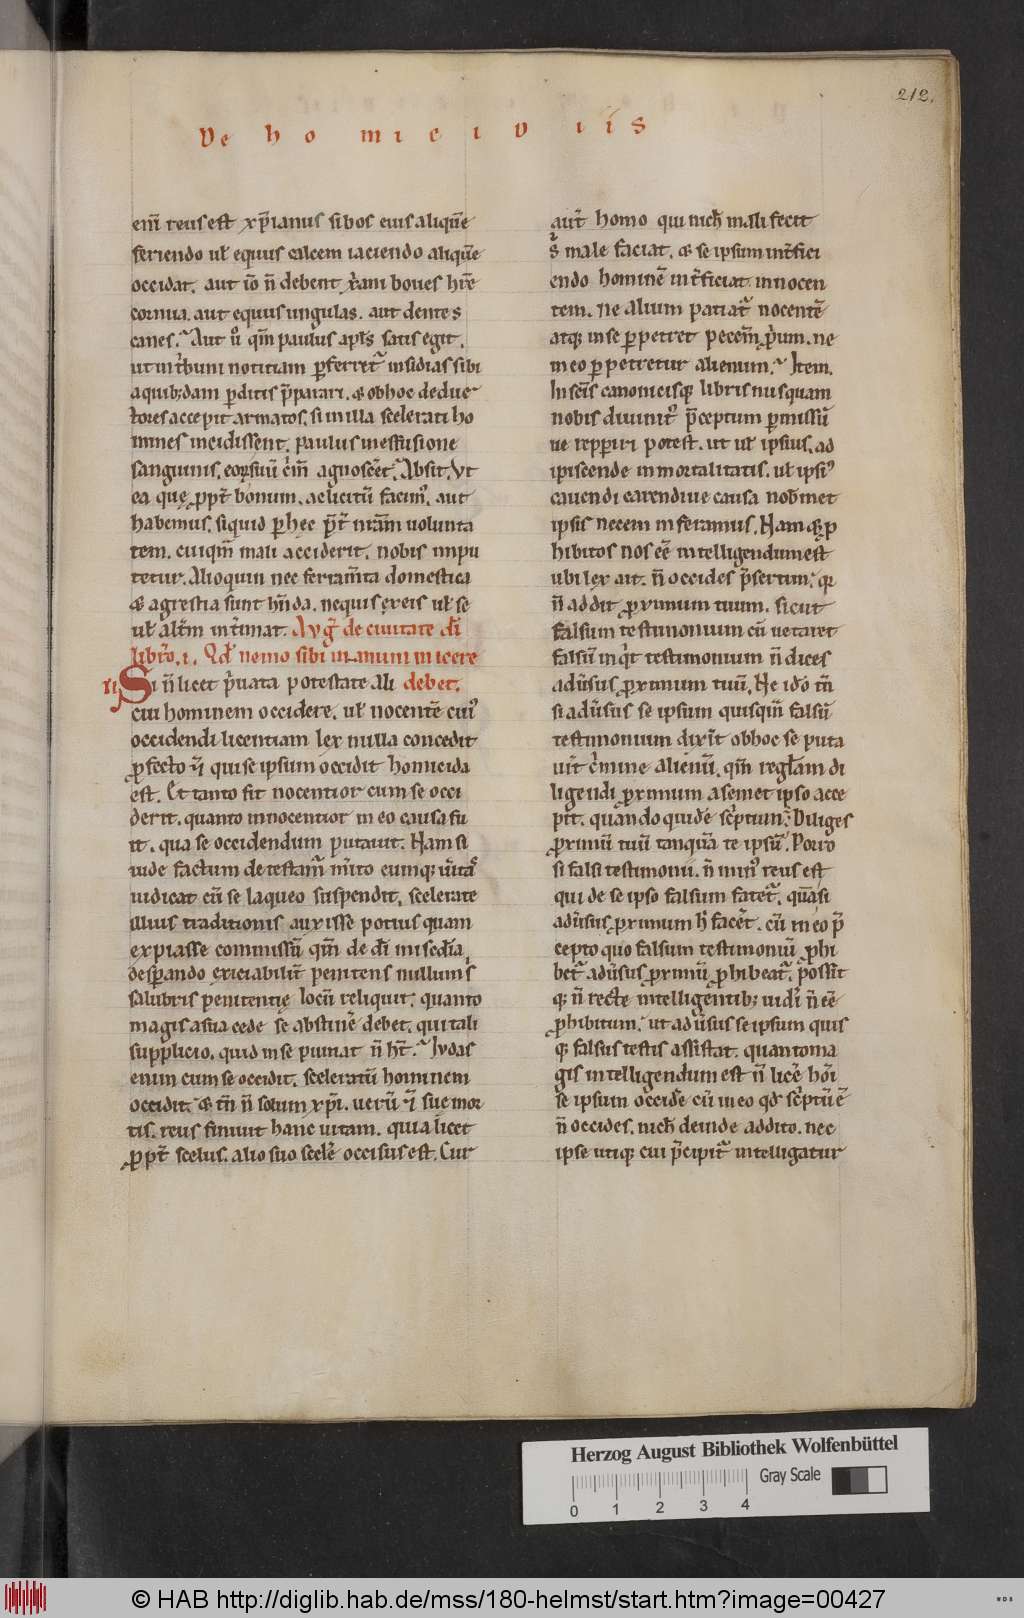 212.
De homicidiis
eni̅ reus est xp̅ianus si bos eius alique̅
feriendo ul̓ equus calcem iaciendo alique̅
occidat. aut io̅ n̅ debent xp̅iani boues h̅re
cornua. aut equus ungulas. aut dentes
canes. Aut u̓ qm̅ paulus apl̅s satis egit.
ut in t̓bunu notitiam p̱ferret᷑ insidias sibi
a quibꝫdam p̱ditis p̅parari. & ob hoc deduc
tores accepit armatos. si in illa scelerati ho
mines incidissent. paulus in effusione
sanguinis. eoꝝ suu̅ c̓m̅ agnosce̅t. Absit. Vt
ea quę ꝓpt̅ bonum. ac licitu̅ facim᷒. aut
habemus. siquid p̱ hec p̅t̅ n̅ram uolunta
tem. cuiqm̅ mali acciderit. nobis impu
tetur. Alioquin nec ferram̅ta domestica
& agrestia sunt h̅nda. nequis ex eis ul̓ se
ul̓ alt̅m int̓imat. Avg᷑ de ciuitate di̅
libro .i. Qd̓ nemo sibi manum inicere
vi Si n̅ licet p̓uata potestate ali debet.
cui hominem occidere. ul̓ nocente̅ cui᷒
occidendi licentiam lex nulla concedit
ꝓfecto &̅ qui se ipsum occidit homicida
est. Et tanto fit nocentior cum se occi
derit. quanto innocentior in eo causa fu
it. qua se occidendum putauit. Nam si
iude factum detestam᷑ m̓ito eumqꝫ u̅ita᷒
iudicat cu̅ se laqueo suspendit. scelerate
illius traditionis auxisse potius quam
expiasse commissu̅ qm̅ de di̅ mis̅cdia
desp̱ando exiciabilit̅ penitens nullum s̅
salubris penitentię locu̅ reliquit. quanto
magis a sua cede se abstine̅ debet. qui tali
supplicio. quid in se puniat n̅ h̅t. Ivdas
enim cum se occidit. sceleratu̅ hominem
occidit. & tn̅ n̅ solum xp̅i. ueru̅ &̅ sue mor
tis. reus finiuit hanc uitam. quia licet
ꝓpt̅ scelus. alio suo scele̅ occisus est. Cur
aut̅ homo qui nich̅ mali fecit
s᷑ male faciat. & se ipsum int̓fici
endo homine̅ int̓ficiat innocen
tem. ne alium patiat᷑ nocente̅
atqꝫ in se p̱petret peccm̅ ꝓprium. ne
in eo p̱petretur alienum. Item.
In sc̅is canonicisqꝫ libris nusquam
nobis diuinit᷒ p̅ceptum p̱missu̅
ue reppiri potest. ut ul̓ ipsius. ad
ipiscende inmortalitatis. ul̓ ipsi᷒
cauendi carendiue causa nob̅met
ipsis necem inferamus. Nam & ꝓ
hibitos nos ee̅ intelligendum est
ubi lex ait. n̅ occides p̅sertim. qꝛ
n̅ addit proximum tuum. sicut
falsum testimonium cu̅ uetaret
falsu̅ inq̓t testimonium n̅ dices
adu̅sus proximum tuu̅. Ne ido̅ tn̅
si adu̅sus se ipsum quisqm̅ falsu̅
testimonium dixit̅ ob hoc se puta
uit̅ c̓mine alienu̅. qm̅ regl̅am di
ligendi proximum a semet ipso acce
pit. quando quide̅ sc̓ptum. Diliges
proximu̅ tuu̅ tanqua̅ te ipsu̅. Porro
si falsi testimonii. n̅ min᷒ reus est
qui de se ipso falsum fatet᷑. qua̅si
adu̅sus proximum h̓ facet̅. cu̅ in eo p̅
cepto quo falsum testimoniu̅ ꝓhi
bet᷑ adu̅sus proximu̅ ꝓhibeat᷑. possit̅
qꝫ n̅ recte intelligentibꝫ uidi̅ n̅ ee̅
ꝓhibitum. ut adu̅sus se ipsum quis
qꝫ falsus testis assistat. quanto ma
gis intelligendum est n̅ lice̅ ho̅i
se ipsum occide̅ cu̅ in eo qd̓ sc̓ptu̅ e̅
n̅ occides. nich̅ deinde addito. nec
ipse utiqꝫ cui p̅cipit᷑ intelligatur
Herzog August Bibliothek Wolfenbüttel
Gray Scale
0 1 2 3 4
© HAB http://diglib.hab.de/mss/180-helmst/start.htm?image=00427